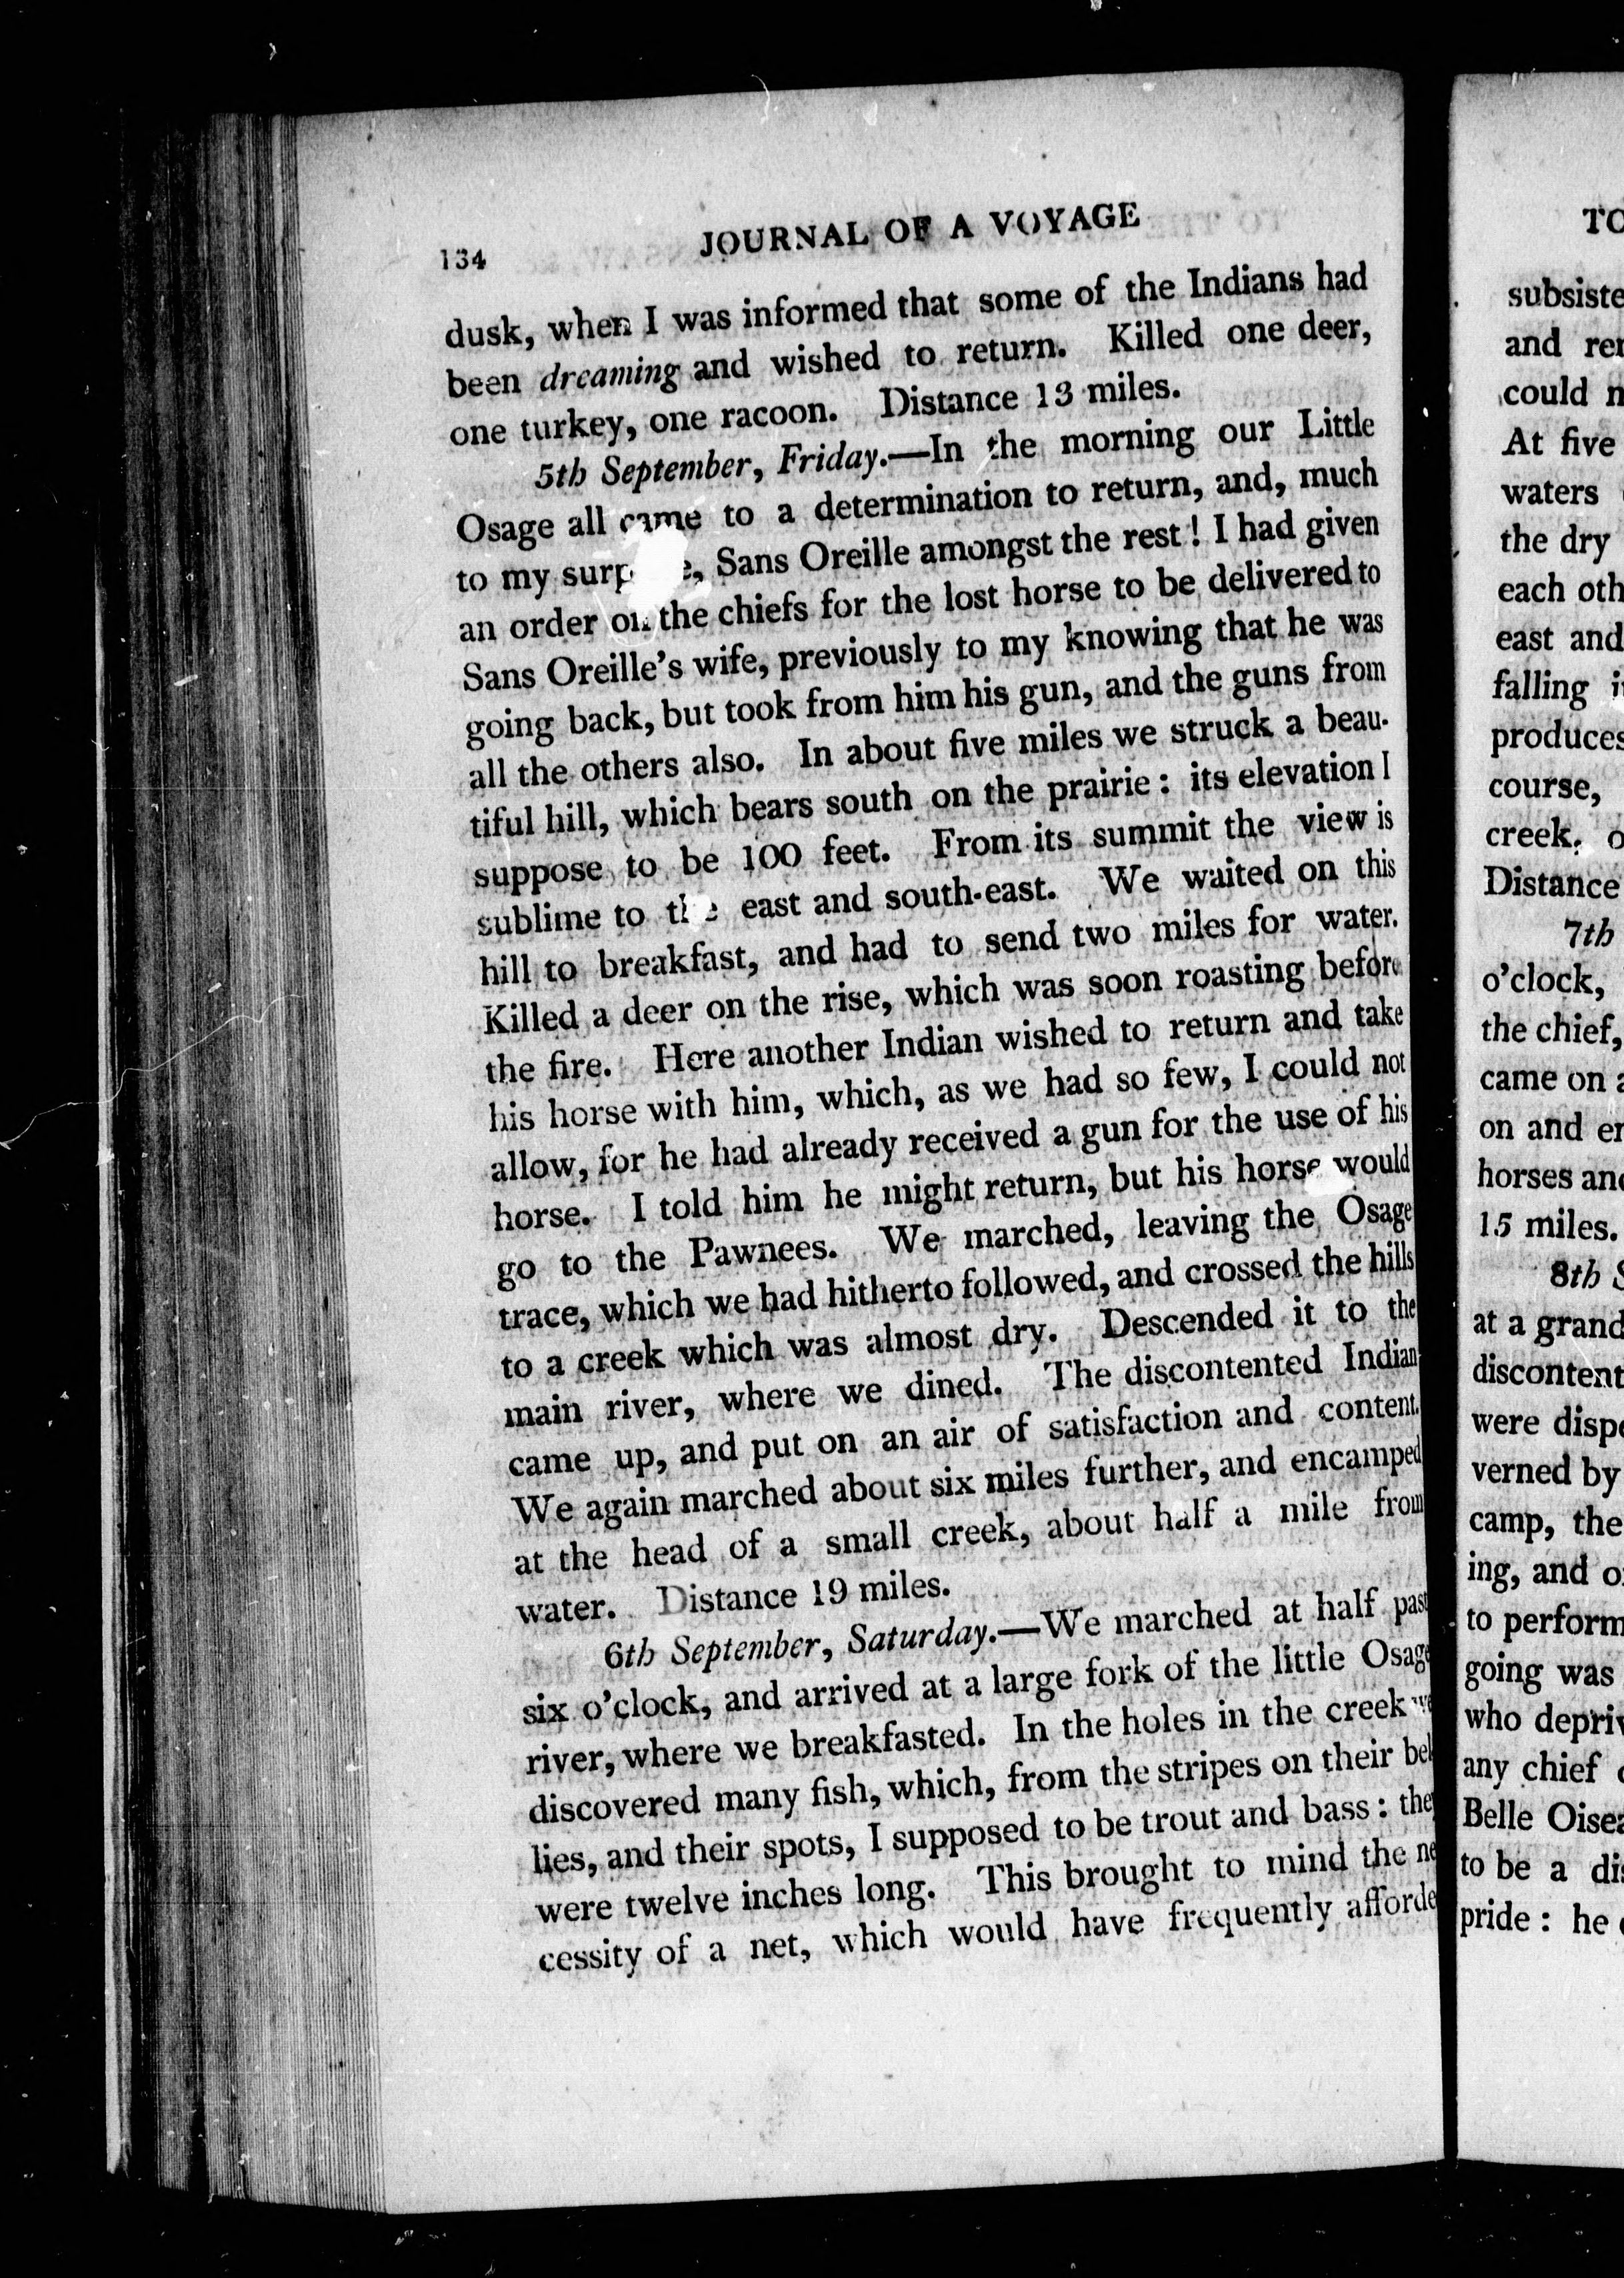 134
JOURNAL OF A VOYAGE
dusk, when I was informed that some of the Indians had
been dreaming and wished to return. Killed one deer,
one turkey, one racoon. Distance 13 miles.
5th September, Friday.—In the morning our Little
Osage all came to a determination to return, and, much
to my surp e, Sans Oreille amongst the rest! I had given
an order on the chiefs for the lost horse to be delivered to
Sans Oreille's wife, previously to my knowing that he was
going back, but took from him his gun, and the guns from
all the others also. In about five miles we struck a beau-
tiful hill, which bears south on the prairie: its elevation I
suppose to be 100 feet. From its summit the view is
sublime to the east and south-east. We waited on this
hill to breakfast, and had to send two miles for water.
Killed a deer on the rise, which was soon roasting before
the fire. Here another Indian wished to return and take
his horse with him, which, as we had so few, I could not
allow, for he had already received a gun for the use of his
horse. I told him he might return, but his horse would
go to the Pawnees. We marched, leaving the Osage
trace, which we had hitherto followed, and crossed the hills
to a creek which was almost dry. Descended it to the
main river, where we dined. The discontented Indian
came up, and put on an air of satisfaction and content.
We again marched about six miles further, and encamped
at the head of a small creek, about half a mile from
water. Distance 19 miles.
6th September, Saturday.—We marched at half past
six o'clock, and arrived at a large fork of the little Osage
river, where we breakfasted. In the holes in the creek we
discovered many fish, which, from the stripes on their bel
lies, and their spots, I supposed to be trout and bass: they
were twelve inches long. This brought to mind the ne
cessity of a net, which would have frequently afforde
TO
subsiste
and rem
could n
At five
waters
the dry
each oth
east and
falling i
produces
course,
creek, o
Distance
7th
o'clock,
the chief,
came on a
on and en
horses and
15 miles.
8th S
at a grand
discontent
were dispe
verned by
camp, the
ing, and o
to perform
going was
who depriv
any chief
Belle Oisea
to be a dis
pride: he